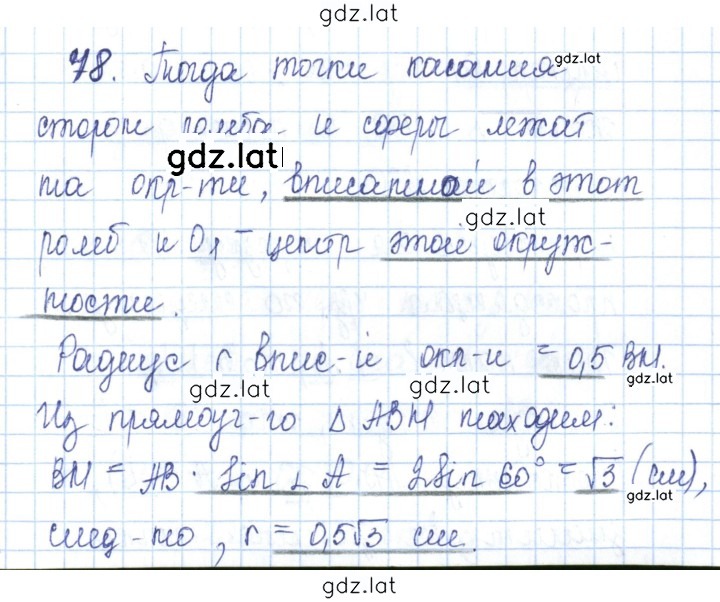 gdz.lat
78. Тогда точки касания gdz.lat
сторон и сферы лежат
gdz.lat
на окр-ти, вписанной в этот
gdz.lat
ромб и O₁ – центр этой окруж-
ности.
Радиус r впис-й окр-и = 0,5 BH.
gdz.lat gdz.lat gdz.lat
Из прямоуг-го Δ ABH находим:
BH = AB · sin ∠ A = 2 sin 60° = √3 (см),
gdz.lat
след-но, r = 0,5√3 см.
gdz.lat